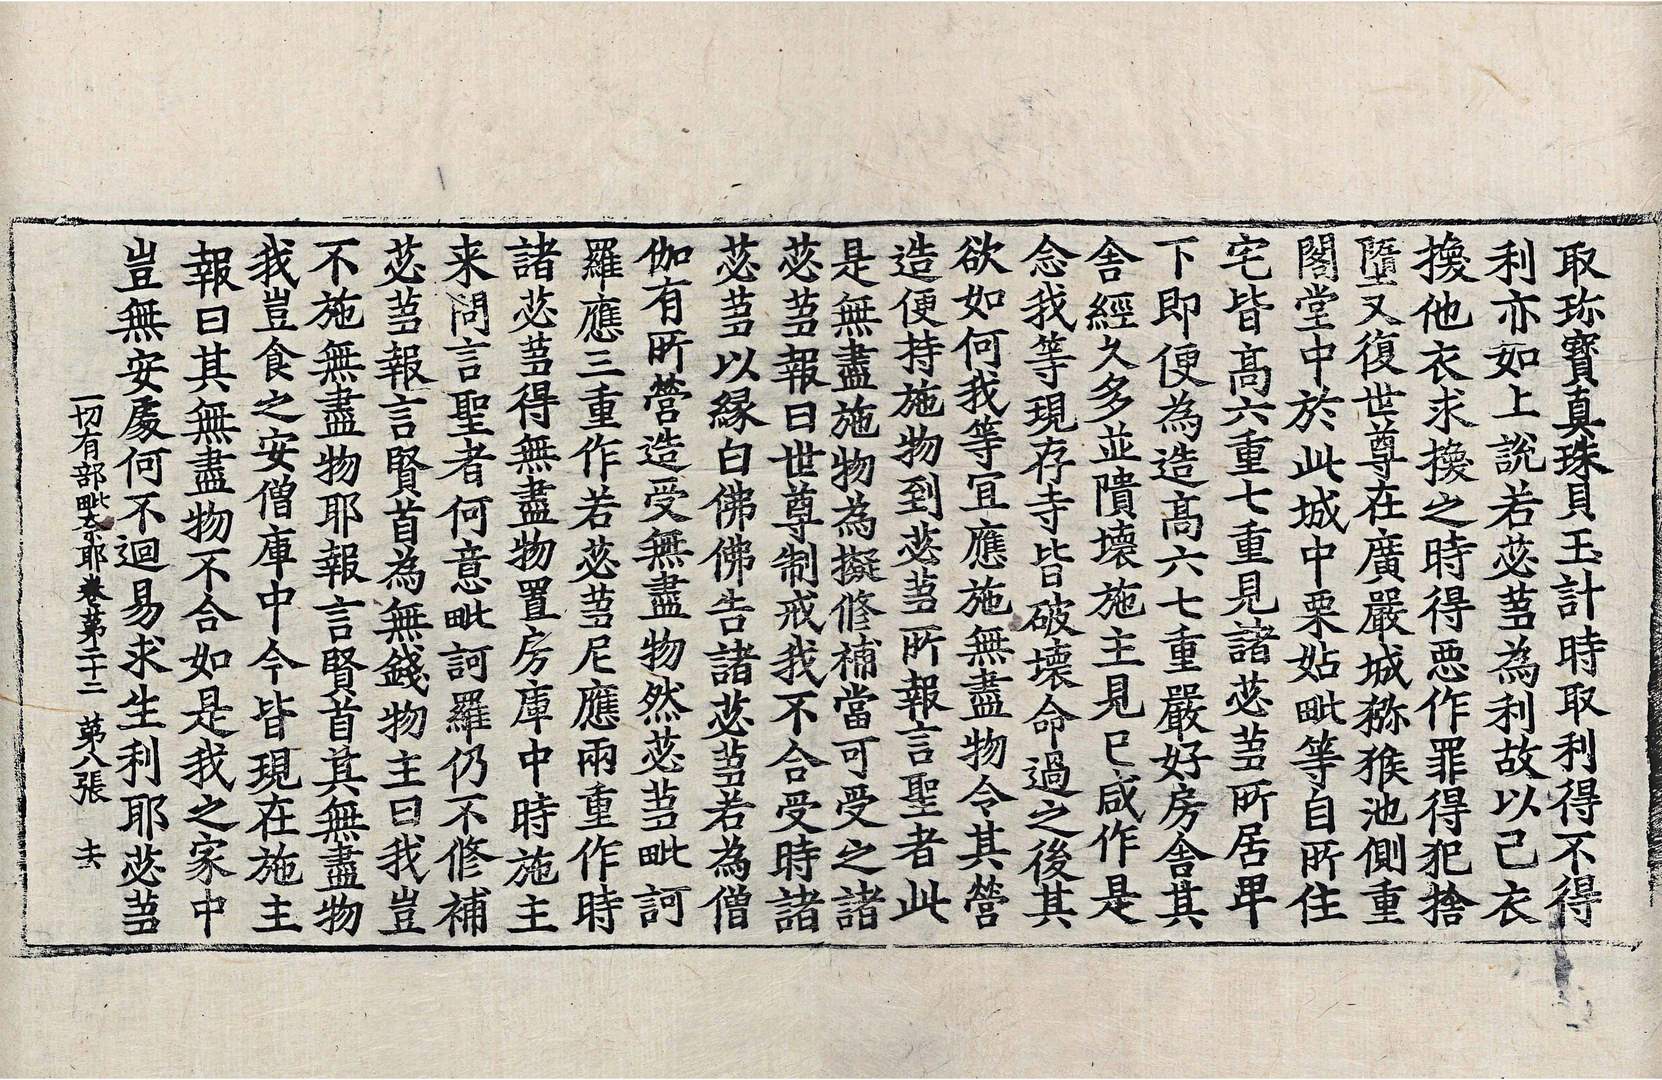 取珎寳真珠貝玉計時取利得不得
利亦如上說若苾蒭為利故以己衣
換他衣求換之時得惡作罪得犯捨
墮又復世尊在廣嚴城猕猴池側重
閣堂中於此城中栗姑毗等自所住
宅皆高六重七重見諸苾蒭所居卑
下即便為造高六七重嚴好房舍其
舍經久多並隤壞施主見已咸作是
念我等現存寺皆破壞命過之後其
欲如何我等宜應施無盡物令其營
造便持施物到苾蒭所報言聖者此
是無盡施物為擬修補當可受之諸
苾蒭報曰世尊制戒我不合受時諸
苾蒭以緣白佛佛告諸苾蒭若為僧
伽有所營造受無盡物然苾蒭毗訶
羅應三重作若苾蒭尼應兩重作時
諸苾蒭得無盡物置房庫中時施主
来問言聖者何意毗訶羅仍不修補
苾蒭報言賢首為無錢物主曰我豈
不施無盡物耶報言賢首其無盡物
我豈食之安僧庫中今皆現在施主
報曰其無盡物不合如是我之家中
豈無安處何不迴易求生利耶苾蒭
一切有部毗奈耶卷第二十二 第八張 去